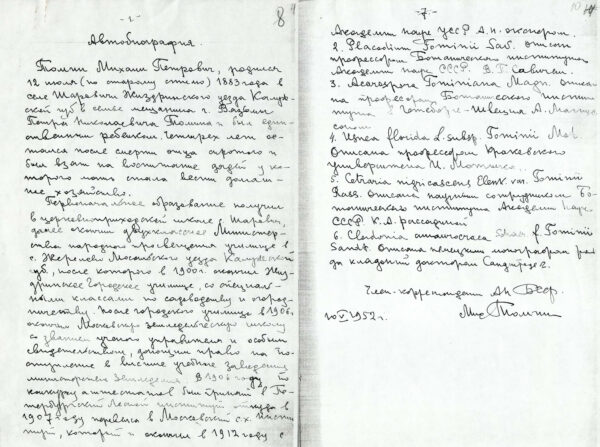 -2-
8
Автобиография.
Томин Михаил Петрович, родился
12 июля (по старому стилю) 1883 года в
селе Шаравич Жиздринского уезда Калуж-
ской губ. в семье мещанина г.
Петра Николаевича Томина и был един-
ственным ребенком. Четырех лет ос-
тался после смерти отца сиротой и
был взят на воспитание дядей у ко-
торого мать стала вести домаш-
нее хозяйство.
Первоначальное образование получил
в церковноприходской школе с. Шаравич,
далее окончил двухклассное Министер-
ства народного просвещения училище в
с. уезда Калужской
губ., после которого в 1900 г. окончил Жиз-
дринское Городское училище, со специаль-
ными классами по садоводству и огород-
ничеству. После городского училища в 1906
окончил Московскую земледельческую школу
со званием ученого управителя и особым
свидетельством, дающим право на по-
ступление в высшие учебные заведения
министерства Земледелия. В 1906 году по
конкурсу аттестатов был принят в Пе-
тербургский Лесной институт откуда в
1907 году перевелся в Московский с.х. инсти-
тут, который и окончил в 1912 году с
-7-
10
Академии наук УССР А.Н. Окснером.
2. Placodium Tominii Sav. Описан
профессором Ботанического института
Академии наук СССР. В.П. Савичем.
3. Acarospora Tominiana Magn. Описа-
на профессором Ботанического инсти-
тута в Швеция А. Магнус-
соном
4. Usnea florida L. subsp. Tominii Mot.
Описана профессором Краковского
университета И. Мотыко..
5. Cetraria nigricascens Elenk. var. Tominii
Rass. Описана научным сотрудником Бо-
танического института Академии наук
СССР К.А. Рассадиной
6. Cladonia f. Tominii
Sandt. Описана немецким монографом ро-
да кладоний доктором Сандштеде.
Член-корреспондент АН БССР.
10/V 1952 г.
Мих Томин